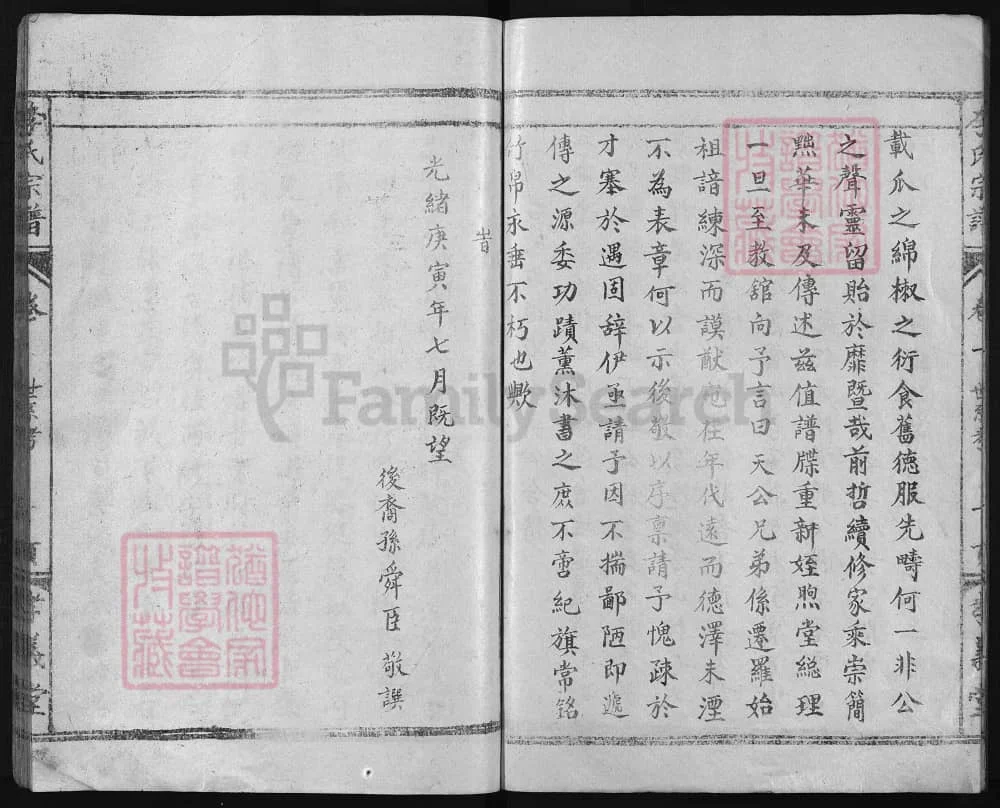 載瓜之綿椒之衍食舊德服先疇何一非公
之聲靈留貽於靡暨哉前哲續修家乘崇簡
黜華未及傳述茲值譜牒重新姪煦堂総理
一旦至教舘向予言曰天公兄弟係遷羅始
祖諳練深而謨猷宛在年代遠而德澤未湮
不為表章何以示後敬以序禀請予愧疎於
才塞於遇固辞伊亟請予因不揣鄙陋即遞
傳之源委功蹟薰沐書之庶不啻紀旗常銘
竹帛永垂不朽也歟
旹
光緒庚寅年七月既望
後裔孫舜臣敬譔
李氏宗譜
卷
世系考
孝義堂
FamilySearch